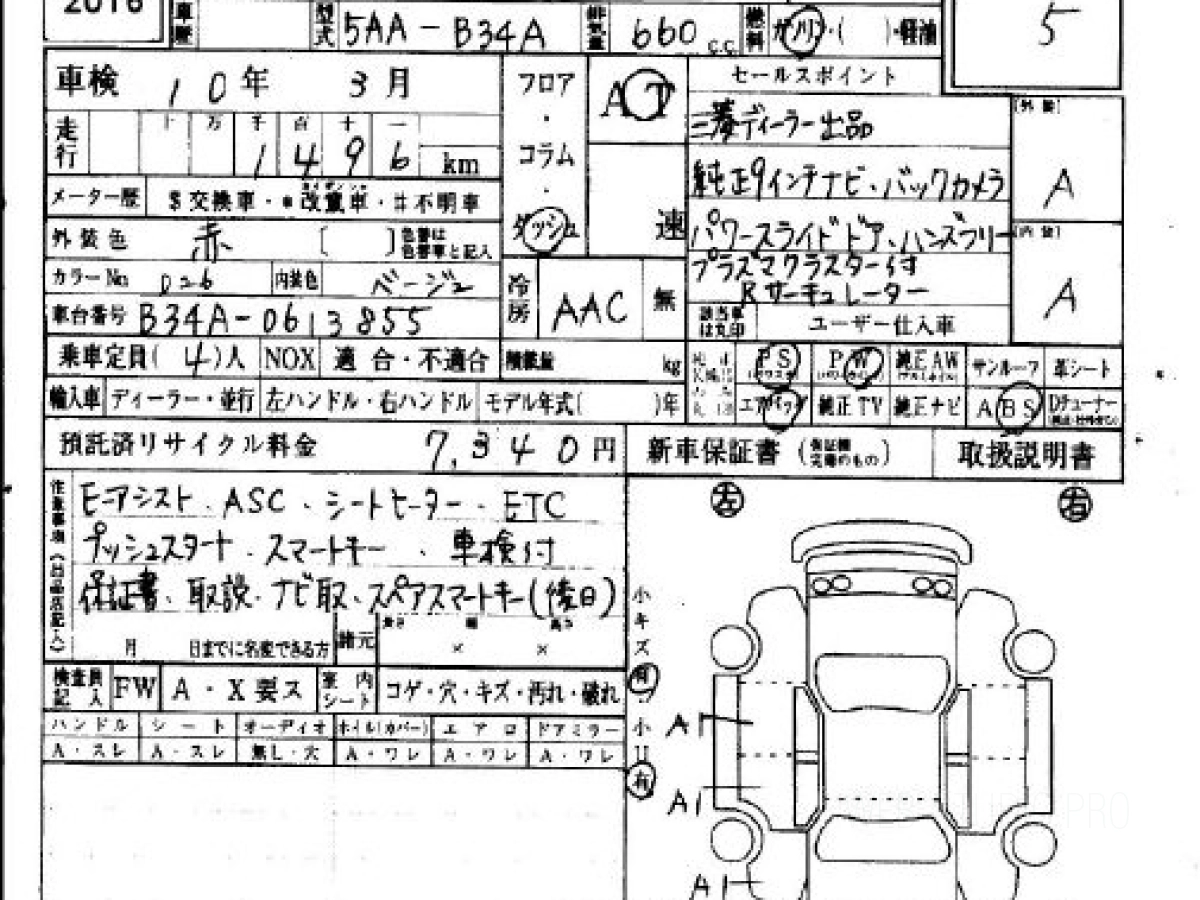 2016
車歴 型式 5AA-B34A 排気量 660 c.c. 燃料 ガソリン・( )・軽油 5
車検 10年 3月 フロア・コラム・ダッシュ AT 速
走行 十 万 千 百 十 一
1496 km
メーター歴 $交換車・*改ザン車・#不明車
外装色 赤 [ ] 色替は色替車と記入
カラーNo D26 内装色 ベージュ
車台番号 B34A-0613855
冷房 AAC 無
セールスポイント
三菱ディーラー出品
純正9インチナビ・バックカメラ
パワースライドドア、ハンズフリー
プラズマクラスター付
Rサーキュレーター
該当車は丸印 ユーザー仕入車
(外装) A
(内装) A
乗車定員(4)人 NOX 適合・不適合 積載量 kg
PS PW 純正AW サンルーフ 革シート
輸入車 ディーラー・並行 左ハンドル・右ハンドル モデル年式( )年
エアバッグ 純正TV 純正ナビ ABS Dチューナー
預託済リサイクル料金 7,340円 新車保証書 (保証継続 完備のもの) 取扱説明書
注意事項(出品店記入)
Eアシスト、ASC、シートヒーター、ETC
プッシュスタート、スマートキー、車検付
保証書、取説、ナビ取、スペアスマートキー(後日)
月 日までに名変できる方 諸元 長さ × 幅 × 高さ
検査員記入 FW A・X要ス 室内シート コゲ・穴・キズ・汚れ・破れ
ハンドル シート オーディオ ホイル(カバー) エアロ ドアミラー
A・スレ A・スレ 無し・穴 A・ワレ A・ワレ A・ワレ
小キズ有
小凹有
左 右
A1
A1
A1
PRO